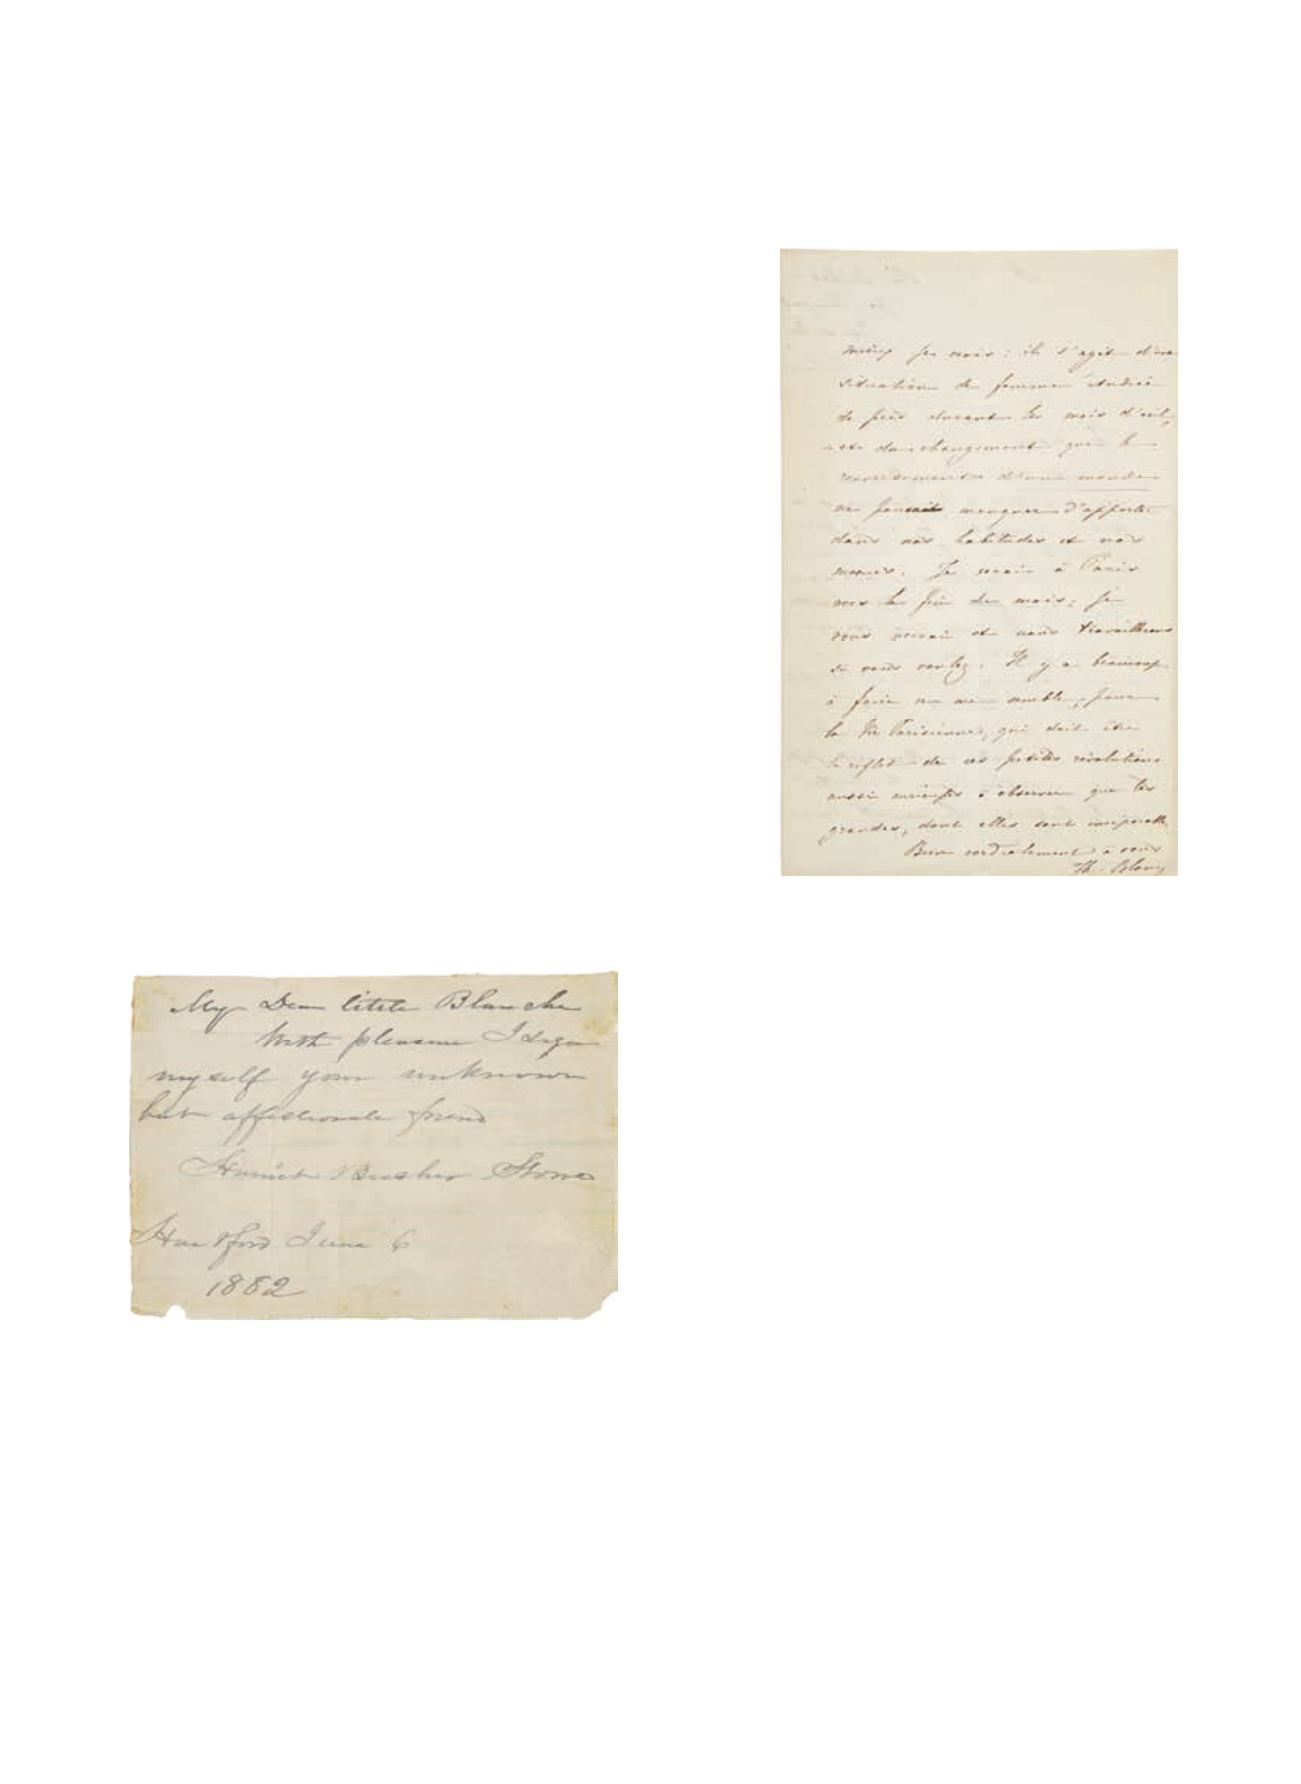 il s'agit d'une
situation de femmes étudiée
de près durant les mois d'exil,
et du changement que le
renversement d'un monde
ne pouvait manquer d'apporter
dans nos habitudes et nos
moeurs. Je serai à Paris
vers la fin du mois; je
vous verrai et nous travaillerons
si vous voulez. Il y a beaucoup
à faire ce me semble, pour
la Vie Parisienne, qui doit être
le reflet de ces petites révolutions
aussi curieuses à observer que les
grandes, dont elles sont
Bien cordialement à vous
Th.
My Dear little Blanche
With pleasure I sign
myself your unknown
but affectionate friend
Harriet Beecher Stowe
Hartford June 6
1882